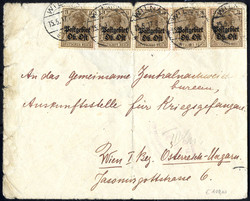 Postgebiet Ob. Ost Postgebiet Ob. Ost Postgebiet Ob. Ost Postgebiet Ob. Ost Postgebiet Ob. Ost
An das gemeinsame Zentralnachweis
bureau,
Auskunftsstelle für Kriegsgefangene
Wien I Bez. Österreich-Ungarn.
Jasomirgottstrasse 6.